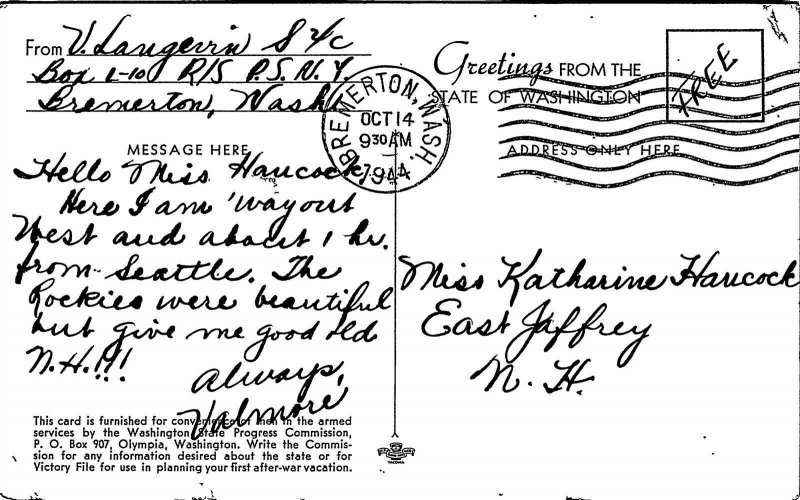 From V. Langevin S 2/c
Box L-10 R/S P.S.N.Y.
Bremerton, Wash.
BREMERTON, WASH.
OCT 14
9 30 AM
1944
Greetings FROM THE
STATE OF WASHINGTON
FREE
MESSAGE HERE
ADDRESS ONLY HERE
Hello Miss Hancock,
Here I am 'way out
West and about 1 hr.
from Seattle. The
Rockies were beautiful
but give me good old
N.H.!!!
Always,
Valmore
Miss Katharine Hancock
East Jaffrey
N. H.
This card is furnished for convenience of men in the armed
services by the Washington State Progress Commission,
P. O. Box 907, Olympia, Washington. Write the Commis-
sion for any information desired about the state or for
Victory File for use in planning your first after-war vacation.
TACOMA